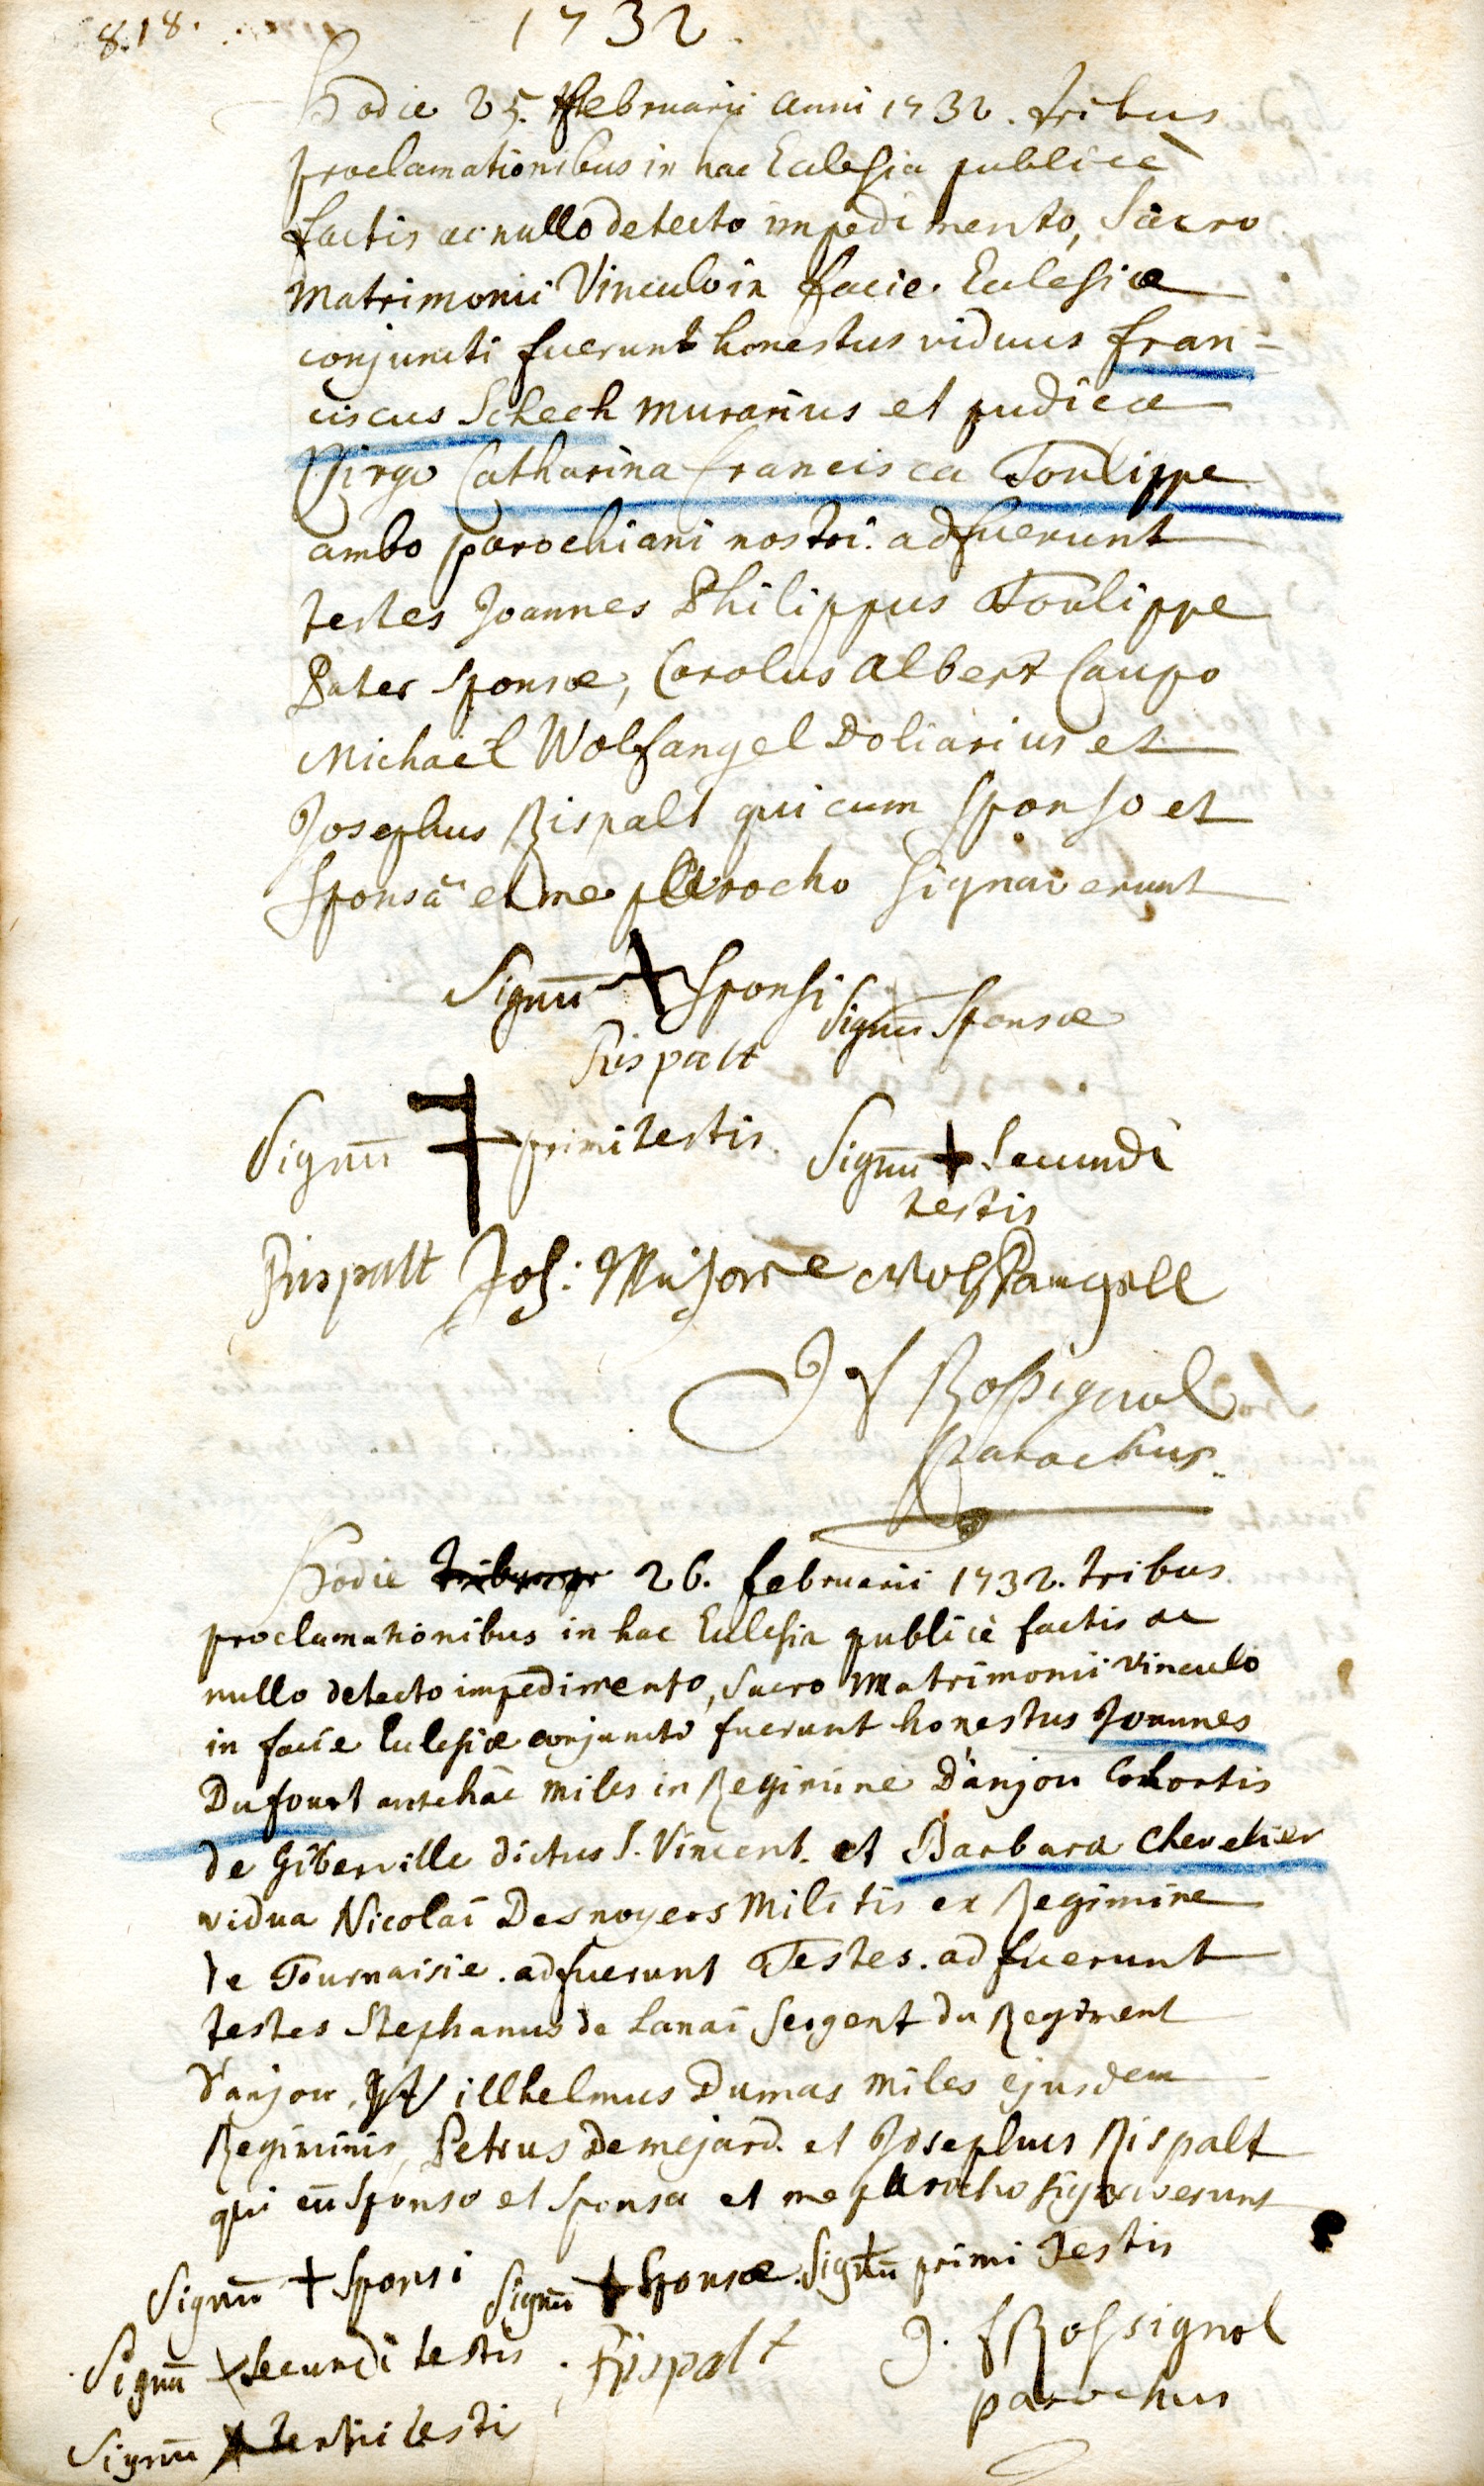 8.18.
1732.
Hodie 25. ffebruarii anni 1732. tribus
proclamationibus in hac Eclesia publicè
factis ac nullo detecto impedimento, Sacro
Matrimonii Vinculo in facie Eclesiæ
conjuncti fuerunt honestus viduus fran=
ciscus Schech murarius et pudica
Virgo Catharina francisca Toulippe
ambo parochiani nostri. adfuerunt
testes Joannes Philippus Toulippe
Pater sponsæ, Carolus Albert Caupo
Michaël Wolfangel Doliarius et
Josephus Rispalt qui cum sponso et
sponsâ et me parocho signaverunt
Signū + sponsi
Signū sponsæ
Rispalt
Signū + primi testis. Signū + secundi
testis
Rispallt Joh: Wolffangell
J f Rossignol
Parochus.
Hodie 26. februarii 1732. tribus
proclamationibus in hac Eclesia publicè factis ac
nullo detecto impedimento, sacro Matrimonii vinculo
in facie Eclesiæ conjuncti fuerunt honestus Joannes
Dufourt antehâc miles in Regimine D'anjou Cohortis
de Giberville dictus S. Vincent. et Barbara Chevelier
vidua Nicolai Desnoyers Militis ex Regimine
de Tournaisie. adfuerunt Testes. adfuerunt
testes Stephanus de Lanai Sergent du Regiment
d'anjou, Willhelmus Dumas miles ejusdem
Regiminis, Petrus Demejard. et Josephus Rispalt
qui cū sponso et sponsa et me parocho signaverunt
Signū + sponsi Signū + sponsæ. Signū primi Testis
Signū x secundi testis. Rispalt J. f Rossignol
parochus
Signū x tertii testi